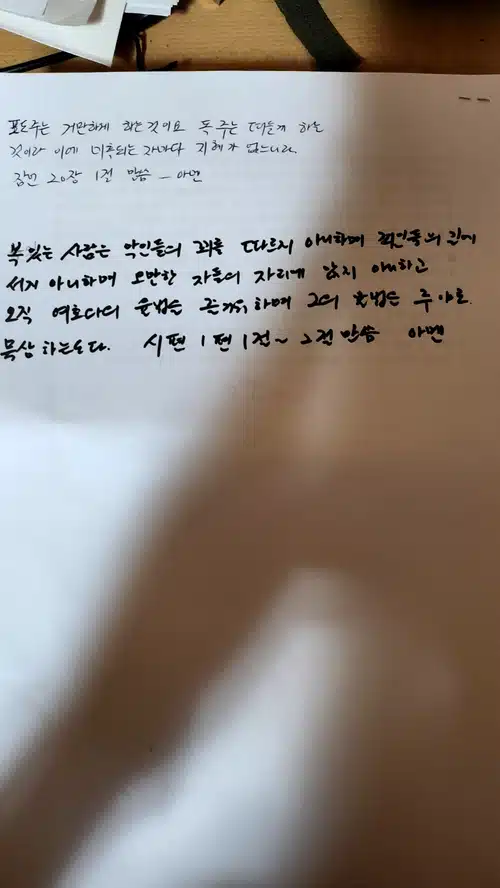 포도주는 거만하게 하는 것이요 독주는 떠들게 하는
것이라 이에 미혹되는 자마다 지혜가 없느니라.
잠언 20장 1절 말씀 - 아멘
복있는 사람은 악인들의 꾀를 따르지 아니하며 죄인들의 길에
서지 아니하며 오만한 자들의 자리에 앉지 아니하고
오직 여호와의 율법을 즐거워하며 그의 율법을 주야로.
묵상하는도다. 시편 1편 1절~2절 말씀 아멘